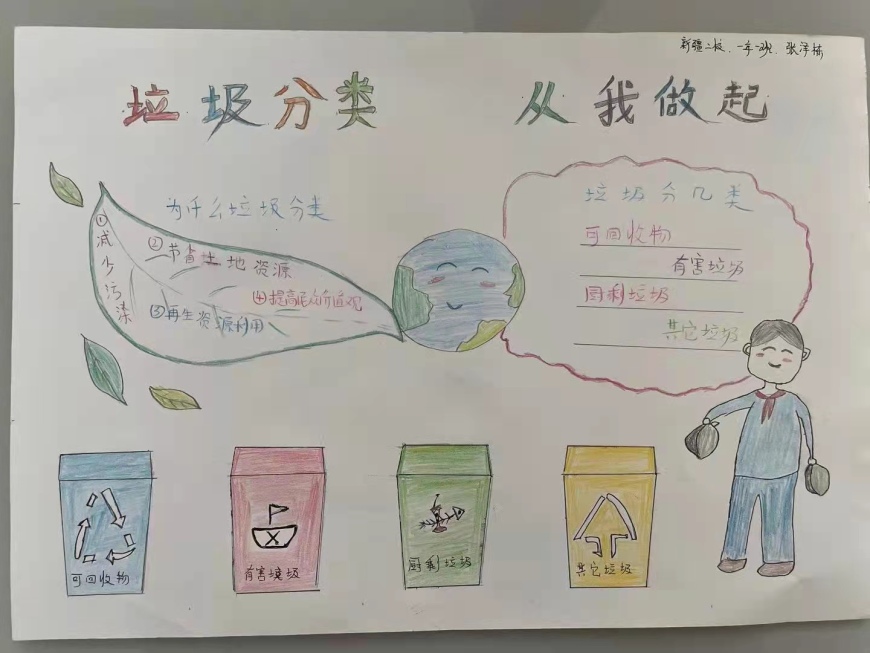 新疆二校、一年一班、张泽栋
垃圾分类 从我做起
为什么垃圾分类
①减少污染
②节省土地资源
③再生资源利用
④提高民众价值观
垃圾分几类
可回收物
有害垃圾
厨剩垃圾
其它垃圾
可回收物
有害垃圾
厨剩垃圾
其它垃圾